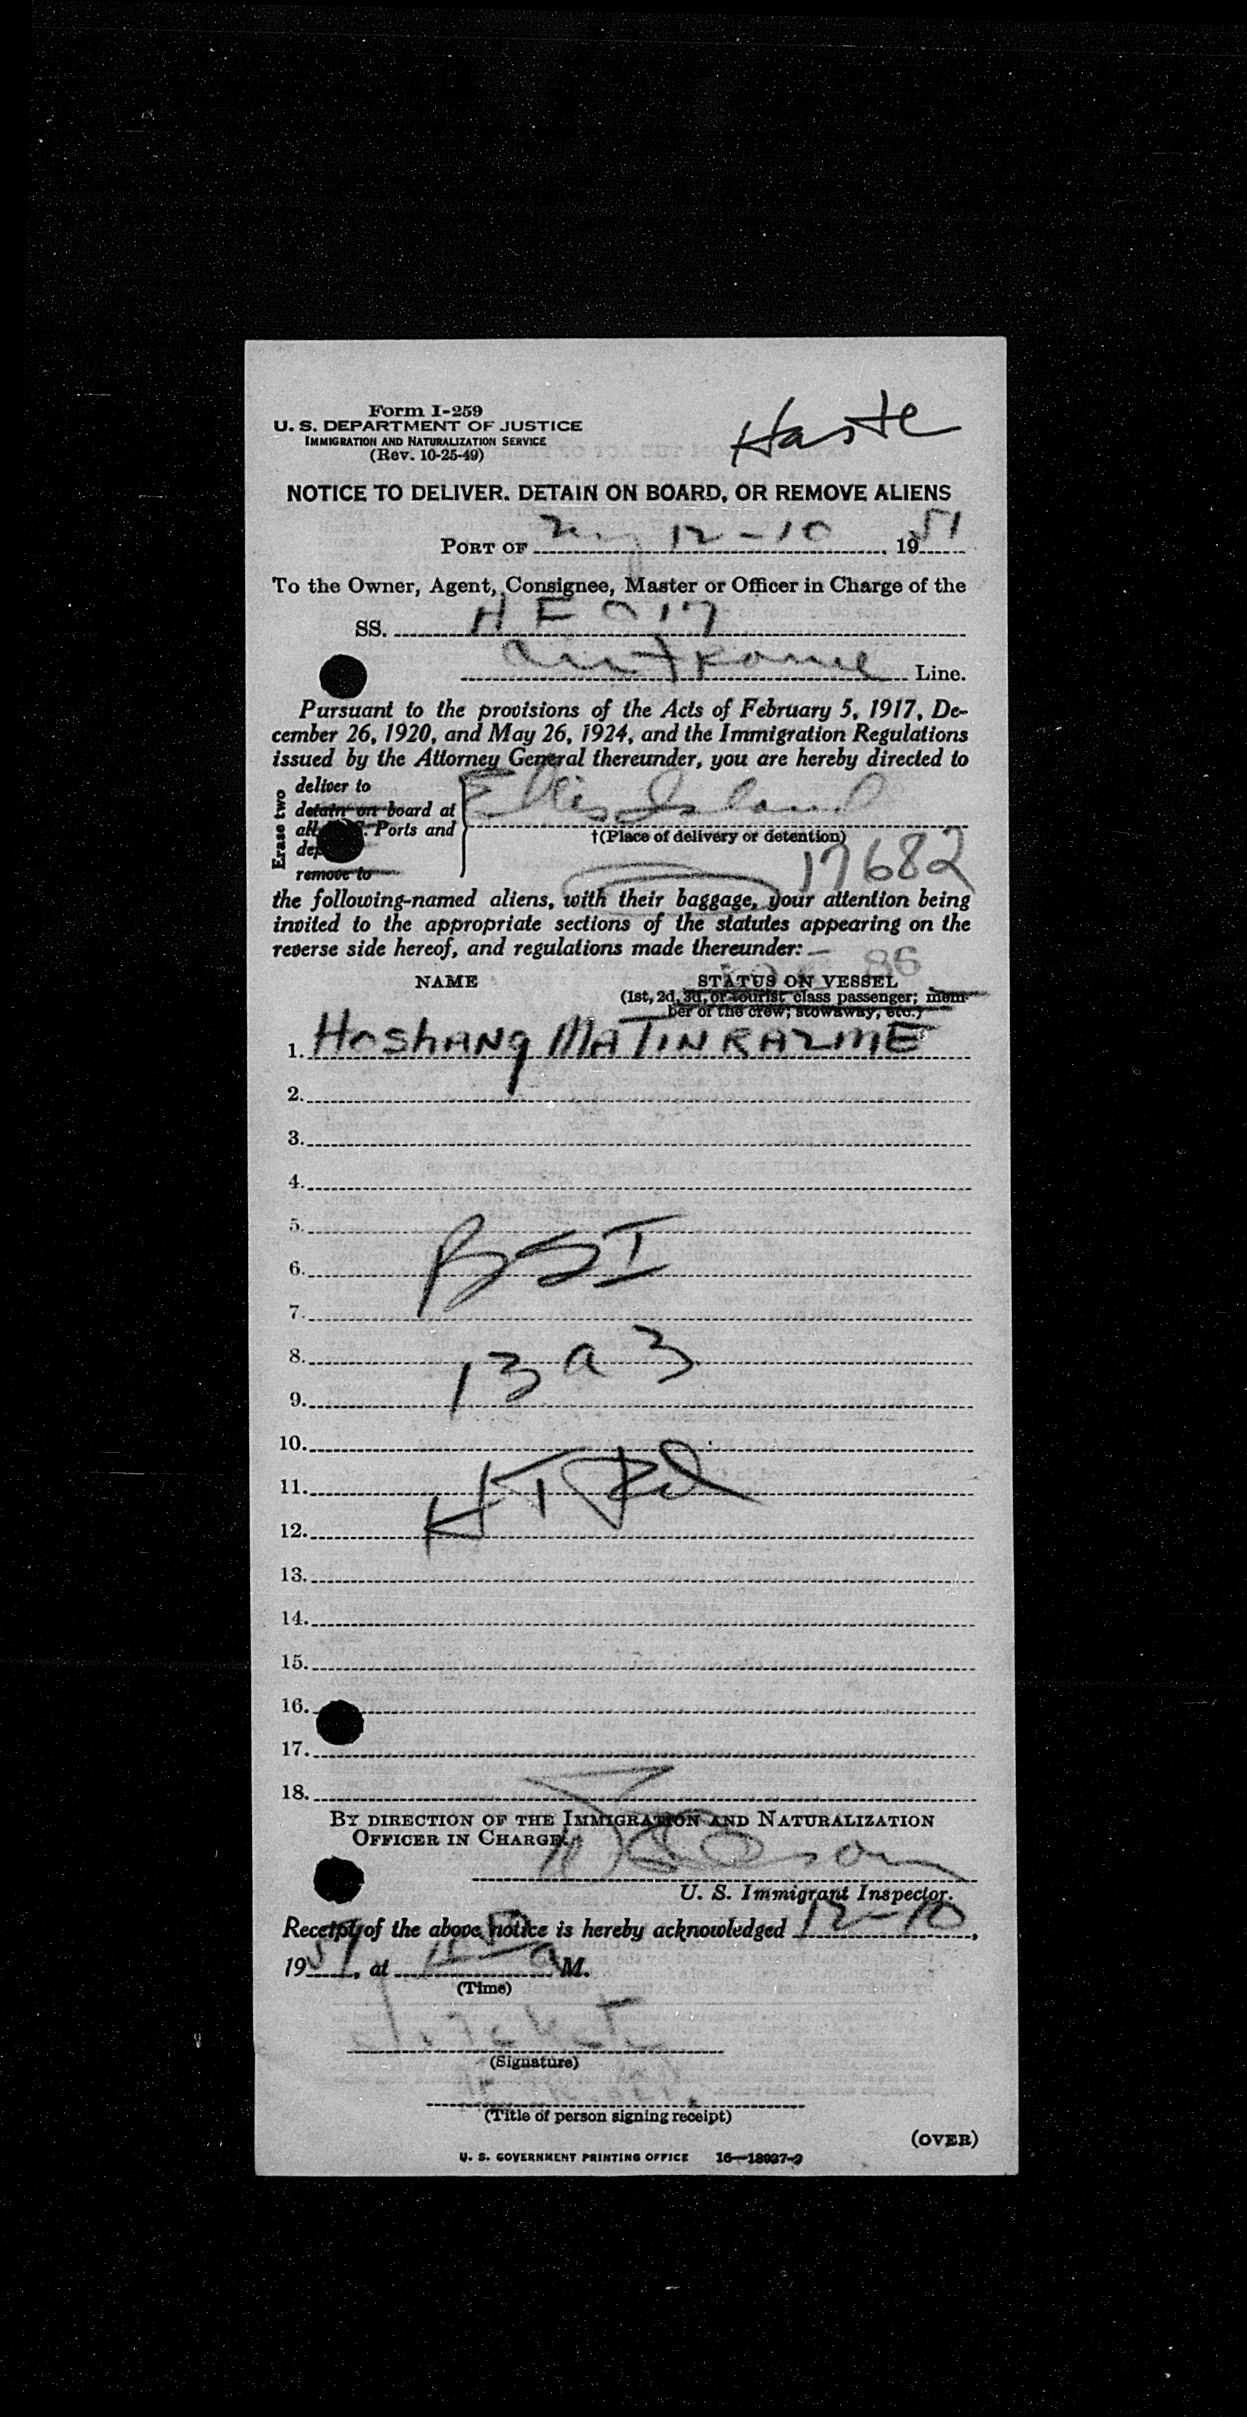 Form I-259
U. S. DEPARTMENT OF JUSTICE
IMMIGRATION AND NATURALIZATION SERVICE
(Rev. 10-25-49)
Haste
NOTICE TO DELIVER. DETAIN ON BOARD, OR REMOVE ALIENS
PORT OF 12-10, 1951
To the Owner, Agent, Consignee, Master or Officer in Charge of the
SS.
Air France Line.
Pursuant to the provisions of the Acts of February 5, 1917, De-
cember 26, 1920, and May 26, 1924, and the Immigration Regulations
issued by the Attorney General thereunder, you are hereby directed to
Erase two
deliver to
detain on board at
all Ports and
remove to
Ellis Island
†(Place of delivery or detention)
17682
the following-named aliens, with their baggage, your attention being
invited to the appropriate sections of the statutes appearing on the
reverse side hereof, and regulations made thereunder:
86
NAME STATUS ON VESSEL
(1st, 2d, 3d, or tourist class passenger; mem-
ber of the crew; stowaway, etc.)
1. HoshANg MATINRAZME
2.
3.
4.
5.
6.
7.
BSI
8.
9.
13 a 3
10.
11.
12.
13.
14.
15.
16.
17.
18.
BY DIRECTION OF THE IMMIGRATION AND NATURALIZATION
OFFICER IN CHARGE.
U. S. Immigrant Inspector.
Receipt of the above notice is hereby acknowledged 12-10,
1951, at a M.
(Time)
(Signature)
(Title of person signing receipt)
(OVER)
U. S. GOVERNMENT PRINTING OFFICE 16—18027-2